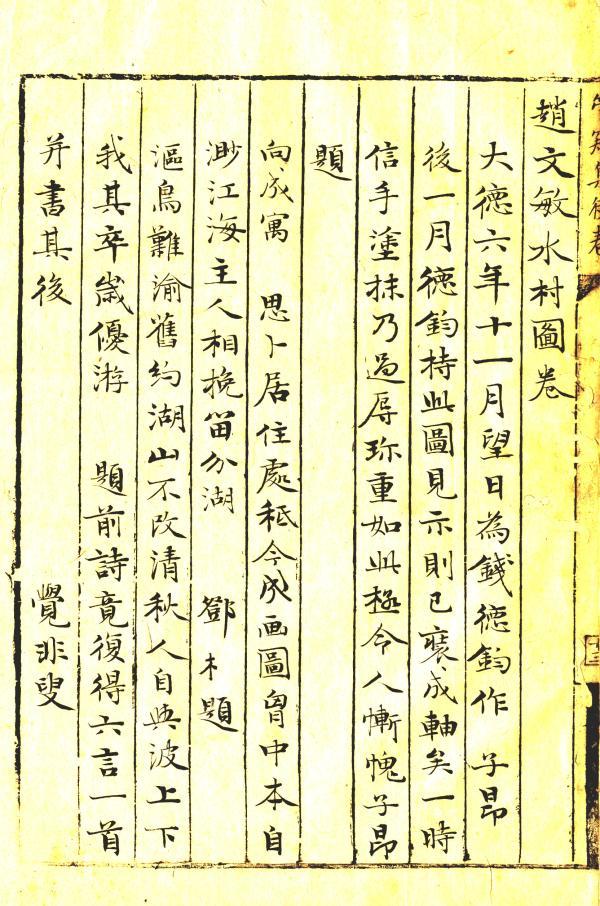 趙文敏水村圖卷
大德六年十一月望日為錢德鈞作 子昂
後一月德鈞持此圖見示則已裝成軸矣一時
信手塗抹乃過辱珍重如此極令人慚愧子昂
題
向成寓 思卜居住處秪今成画圖胷中本自
渺江海主人相挽留分湖 鄧木題
漚鳥難渝舊約湖山不改清秋人自與波上下
我其卒歲優游 題前詩竟復得六言一首
并書其後 覺非叟
十三